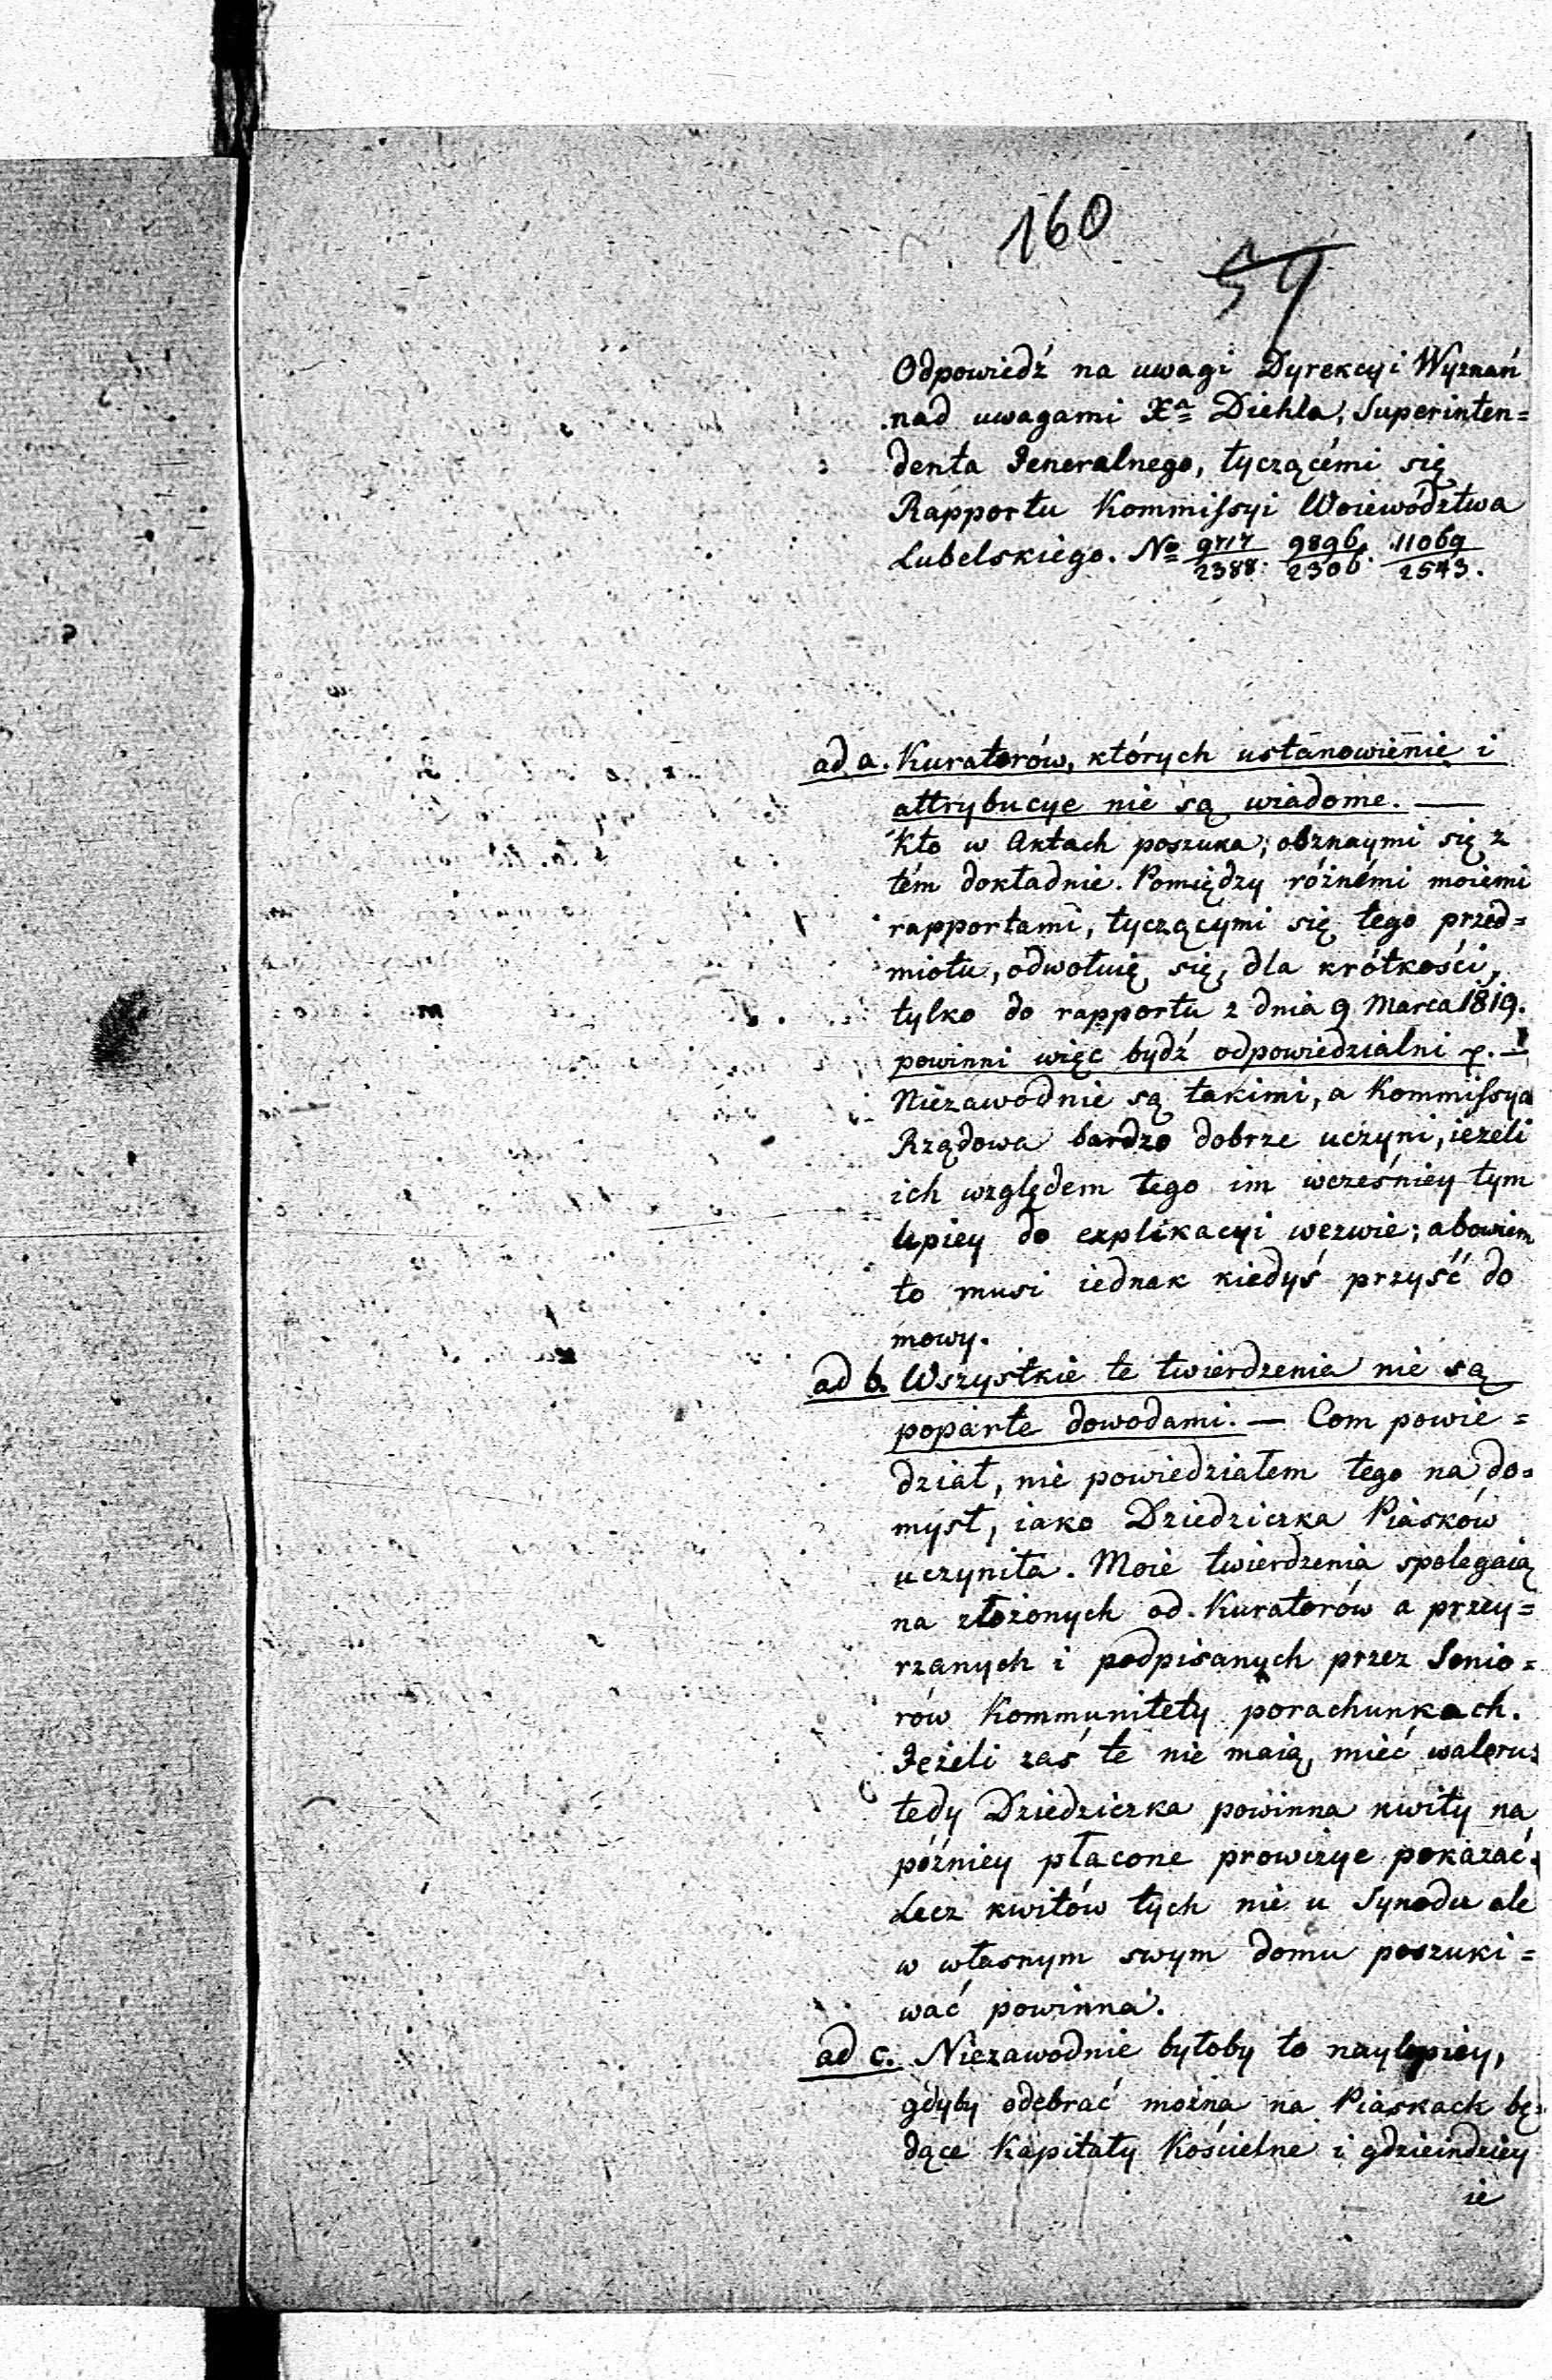 160
59
Odpowiedź na uwagi Dyrekcyi Wyznań
nad uwagami Xa Diehla, Superinten=
denta Jeneralnego, tyczącémi się
Rapportu Kommissyi Woiewództwa
Lubelskiego. No 9717/2388. 9896/2306. 11069/2543.
ad a. Kuratorów, których ustanowienie i
attrybucye nie są wiadome. —
Kto w Aktach poszuka, obznaymi się z
tém dokładnie. Pomiędzy różnémi moiemi
rapportami, tyczącymi się tego przed=
miotu, odwołuię się, dla krótkości,
tylko do rapportu z dnia 9 Marca 1819.
powinni więc bydź odpowiedzialni
Niezawodnie są takimi, a Kommissya
Rządowa bardzo dobrze uczyni, ieżeli
ich względem tego im wcześniey tym
lepiey do explikacyi wezwie; abowiem
to musi iednak kiedyś przyść do
mowy.
ad b. Wszystkie te twierdzenia nie są
poparte dowodami. — Com powie=
dział, nie powiedziałem tego na do=
mysł, iako Dziedziczka Piasków
uczyniła. Moie twierdzenia spolegaią
na złożonych od Kuratorów a przey=
rzanych i podpisanych przez Senio=
rów Kommunitety porachunkach.
Jeżeli zaś te nie maią mieć waloru:
tedy Dziedziczka powinna kwity na
późniey płacone prowizye pokazać.
Lecz kwitów tych nie u Synodu ale
w własnym swym domu poszuki=
wać powinna.
ad c. Niezawodnie byłoby to naylepiey,
gdyby odebrać można na Piaskach bę=
dące Kapitały Kościelne i gdzieindziey
ie